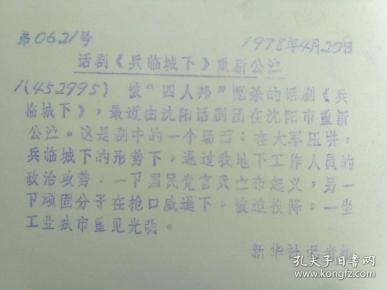 第0621号
1978年4月20日
话剧《兵临城下》重新公演
1(452995) 被“四人邦”扼杀的话剧《兵
临城下》,最近由沈阳话剧团在沈阳市重新
公演。这是剧中的一个场面:在大军压境,
兵临城下的形势下,通过我地下工作人员的
政治攻势,一下国民党官兵立即起义,另一
下顽固分子在枪口威逼下,被迫投降,一坐
工业城市重见光明。
新华社记者
孔夫子旧书网